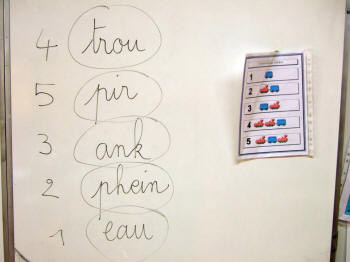 4 trou
5 pir
3 ank
2 phein
1 eau
1
2
3
4
5